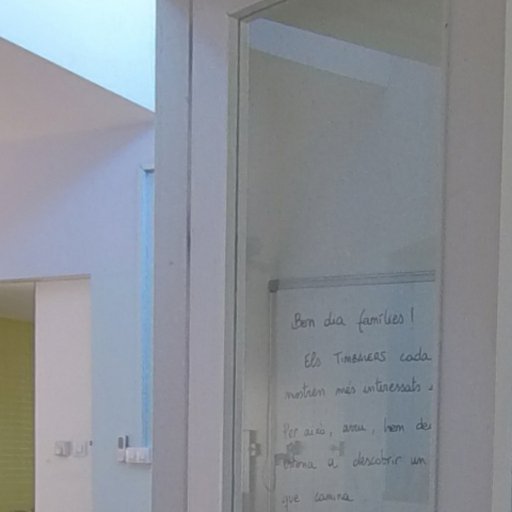 Bon dia famílies!
Els TIMBALERS cada
mostren més interessats
Per això, avui, hem de
estona a descobrir un
que camina